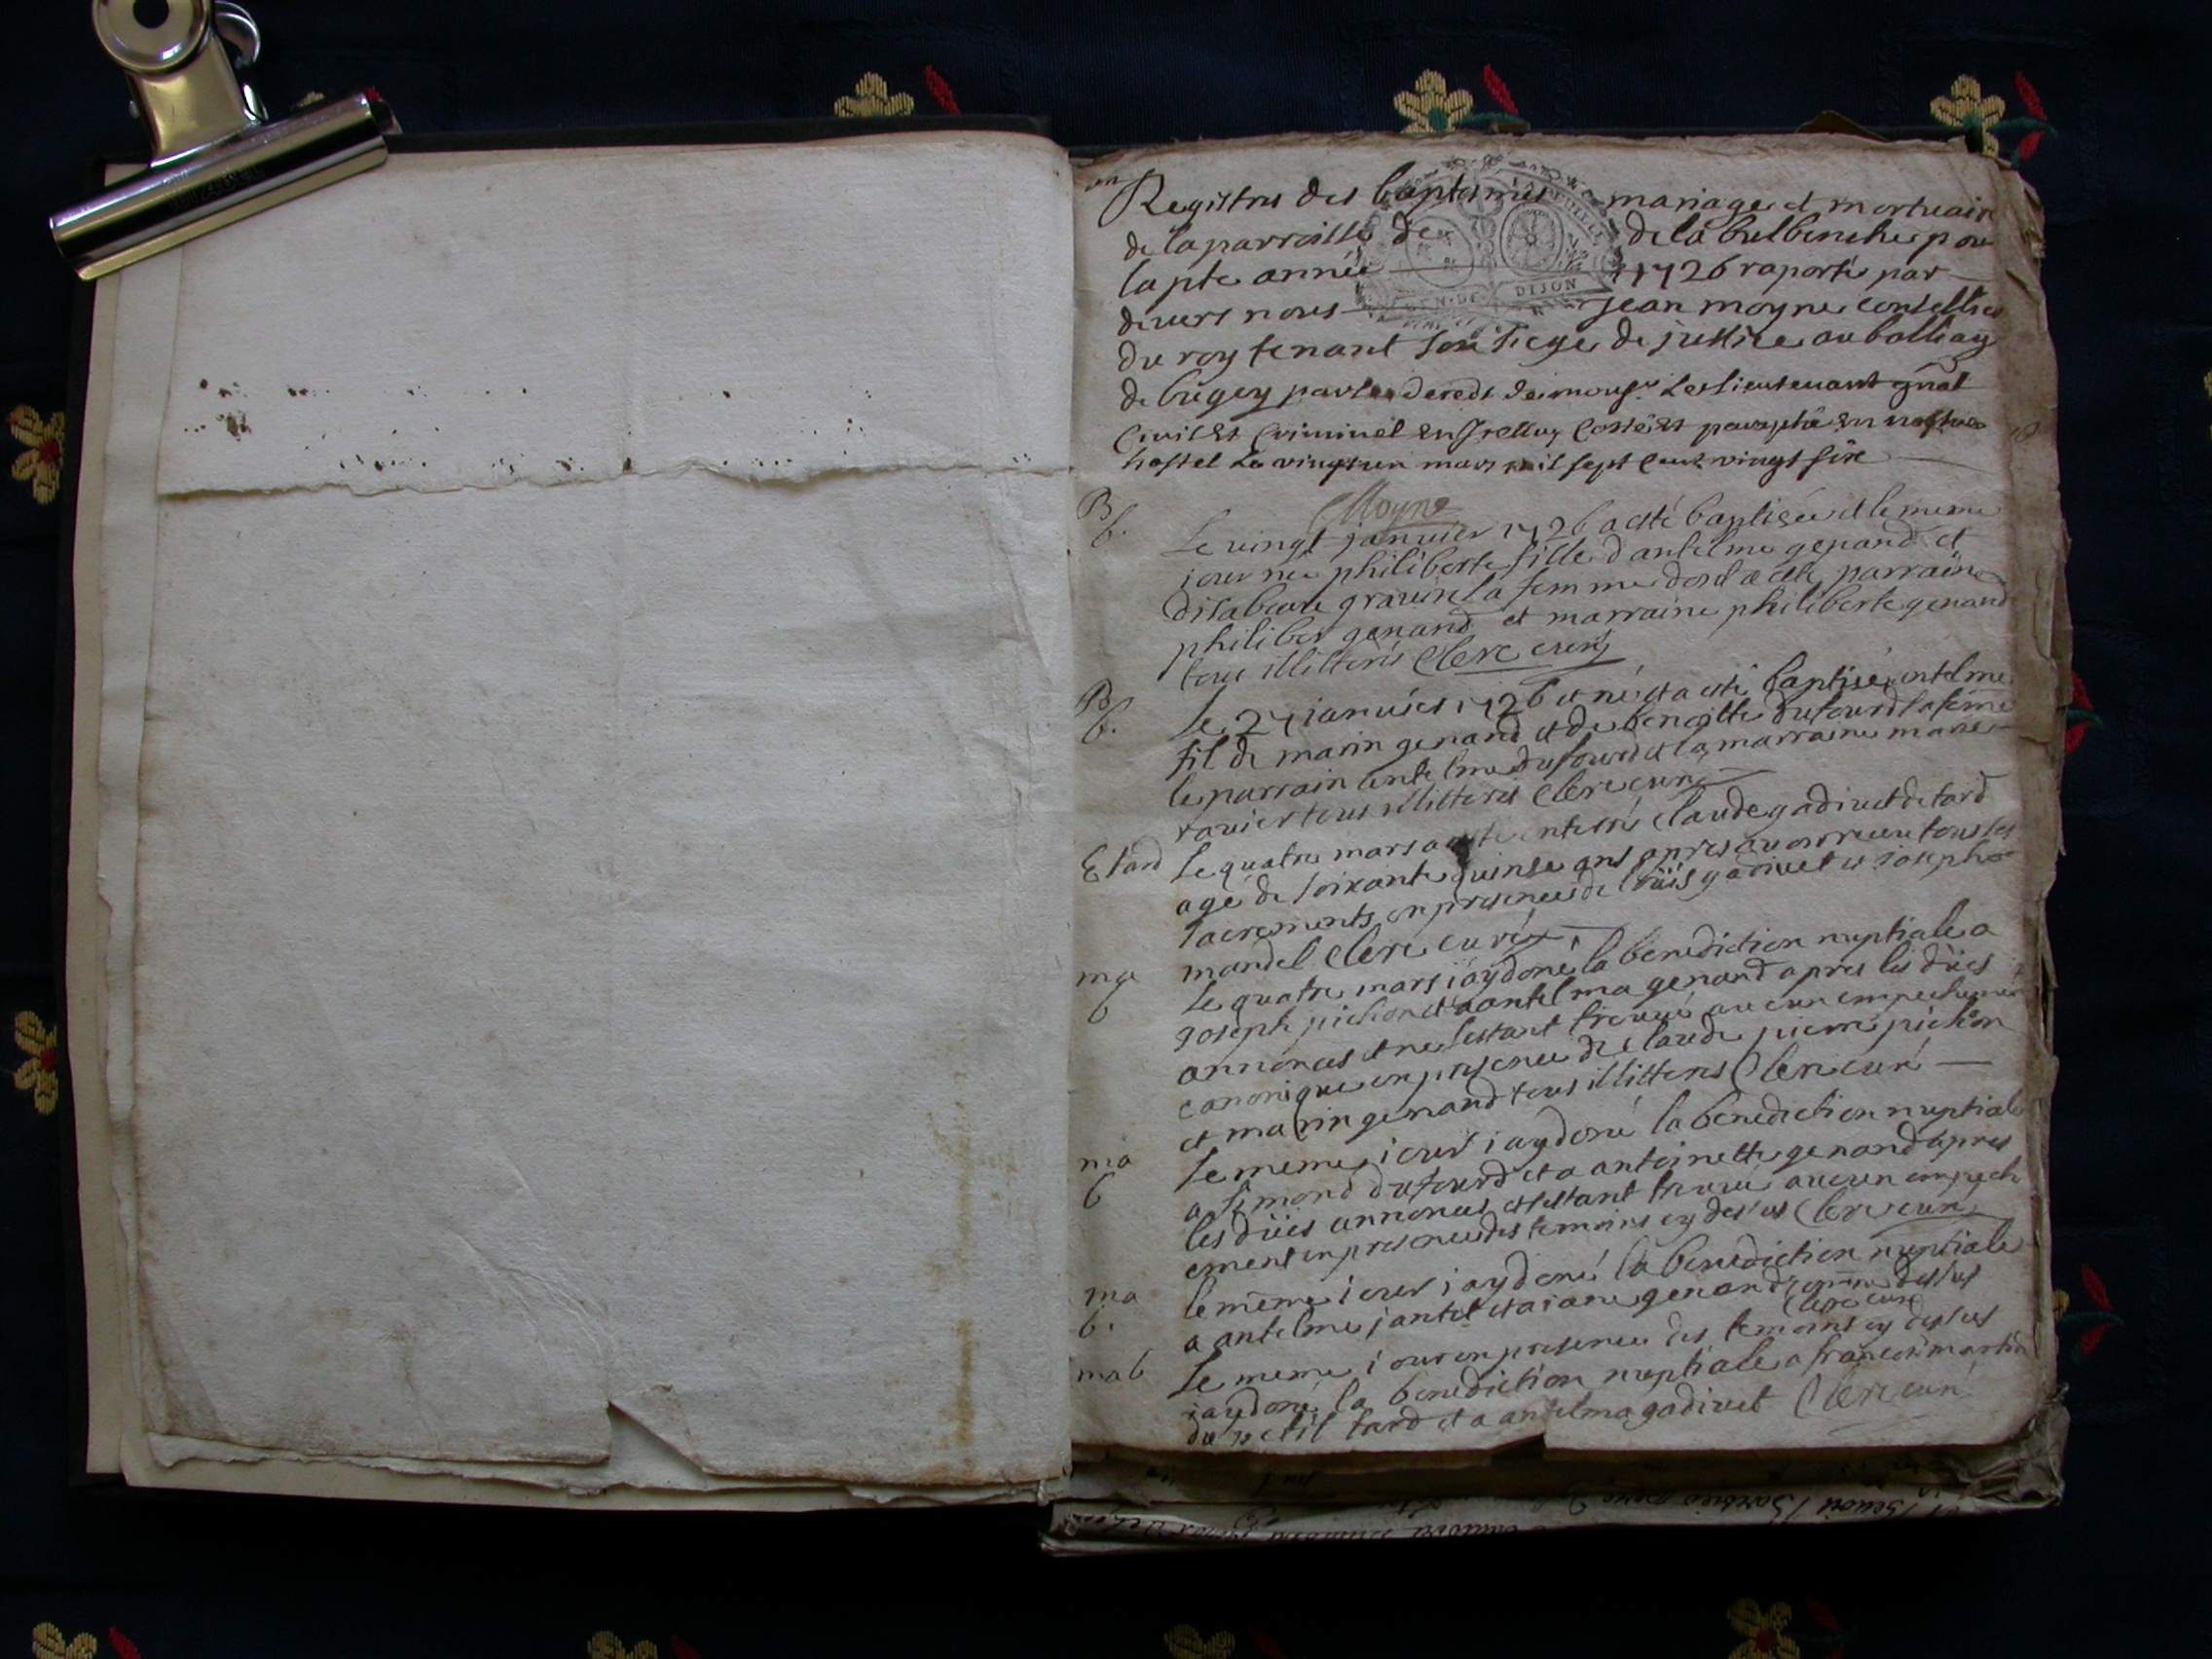 un
Registres des baptesmes mariages et mortuair
de la parroisse de de la bulbenche pour
la pte année 1726 raporté par
devers nous jean moyne conseillier
du roy tenant son siege de justice au balliag
de bugey par le decedt de monsr. Le lieutenant gñal
Civil et Criminel en Icelluy Cotté et paraphé en nostre
hostel Le vingt un mars mil sept cent vingt six
Moyne
GEN. DE DIJON
B b. Le vingt janvier 1726 a esté baptisée et le meme
jour née philiberte fille d antelme genand et
disabeau gravine la femme dont a esté parrain
philiber genand et marraine philiberte genand
tous illitteris Clerc curé
B b. le 27 januier 1726 et né et a esté baptisé antelme
fil de marin genand et de benoitte dufourd sa feme
le parrain antelme dufourd et la marraine marie
ravier tous illitteris Clerc curé
E tard Le quatre mars a esté enterré claude gadivet de tard
agé de soixante quinse ans apres avoir receu tous les
sacrements en presence de loüis gadivet et joseph
mandel Clerc curé
ma b Le quatre mars i ay doné la benediction nuptiale a
joseph pichon et a antelma genand apres les düës
annonces et ne sestant treuvé aucun empechement
canonique en presence de claude pierre pichon
et marin genand tous illitteris Clerc curé
ma b Le meme iour i ay doné la benediction nuptiale
a simond dufourd et a antoinette genand apres
les düës annonces et sestant treuvé aucun empech
ement en presence des temoins cy dessus Clerc curé
ma b. le meme iour i ay doné la benediction nuptiale
a antelme jantet et a iane genand comme dessus
Clerc curé
ma b Le meme iour en presence des temoins cy dessus
i ay doné la benediction nuptiale a francois martin
du petit tard et a antelma gadivet Clerc curé